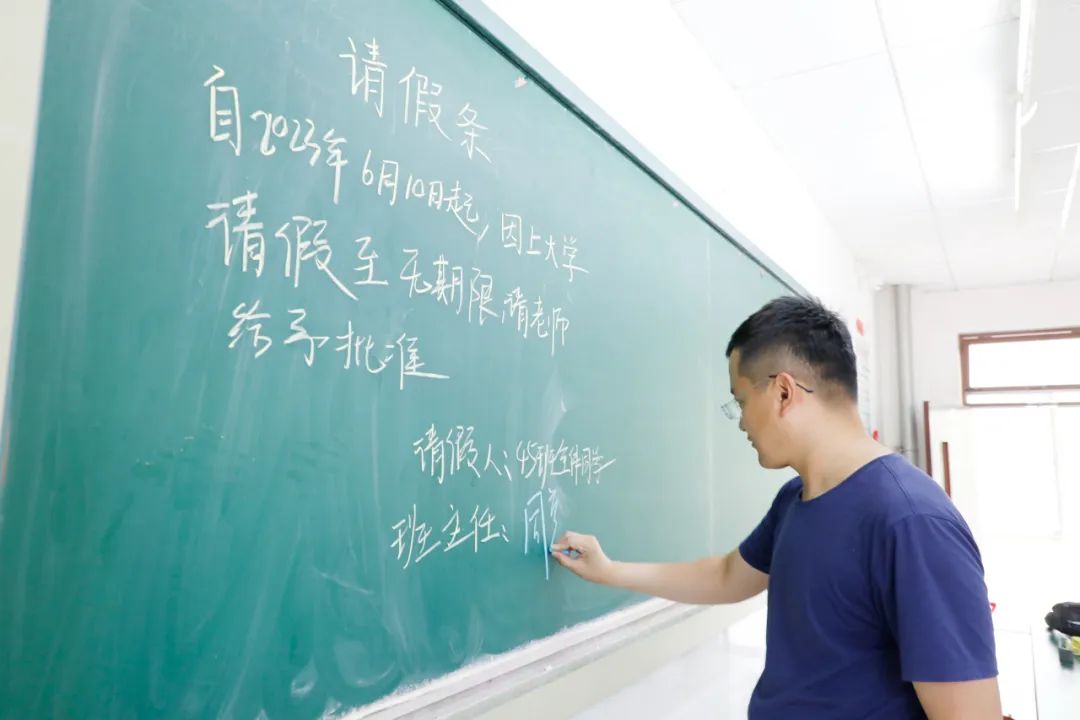 请假条
自2023年6月10日起,因上大学
请假至无期限,请老师
给予批准
请假人:45班全体同学
班主任:同